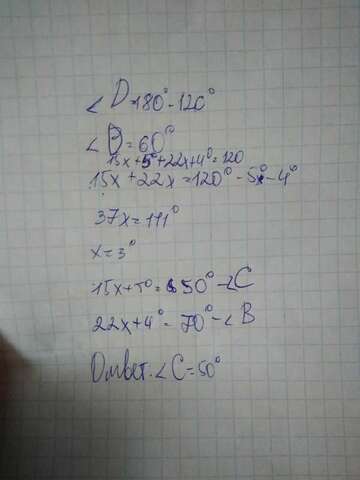 ∠D=180°-120°
∠D=60°
15x+5°+22x+4°=120
15x+22x=120°-5°-4°
37x=111°
x=3°
15x+5°=50°-∠C
22x+4°=70°-∠B
Ответ. ∠C=50°